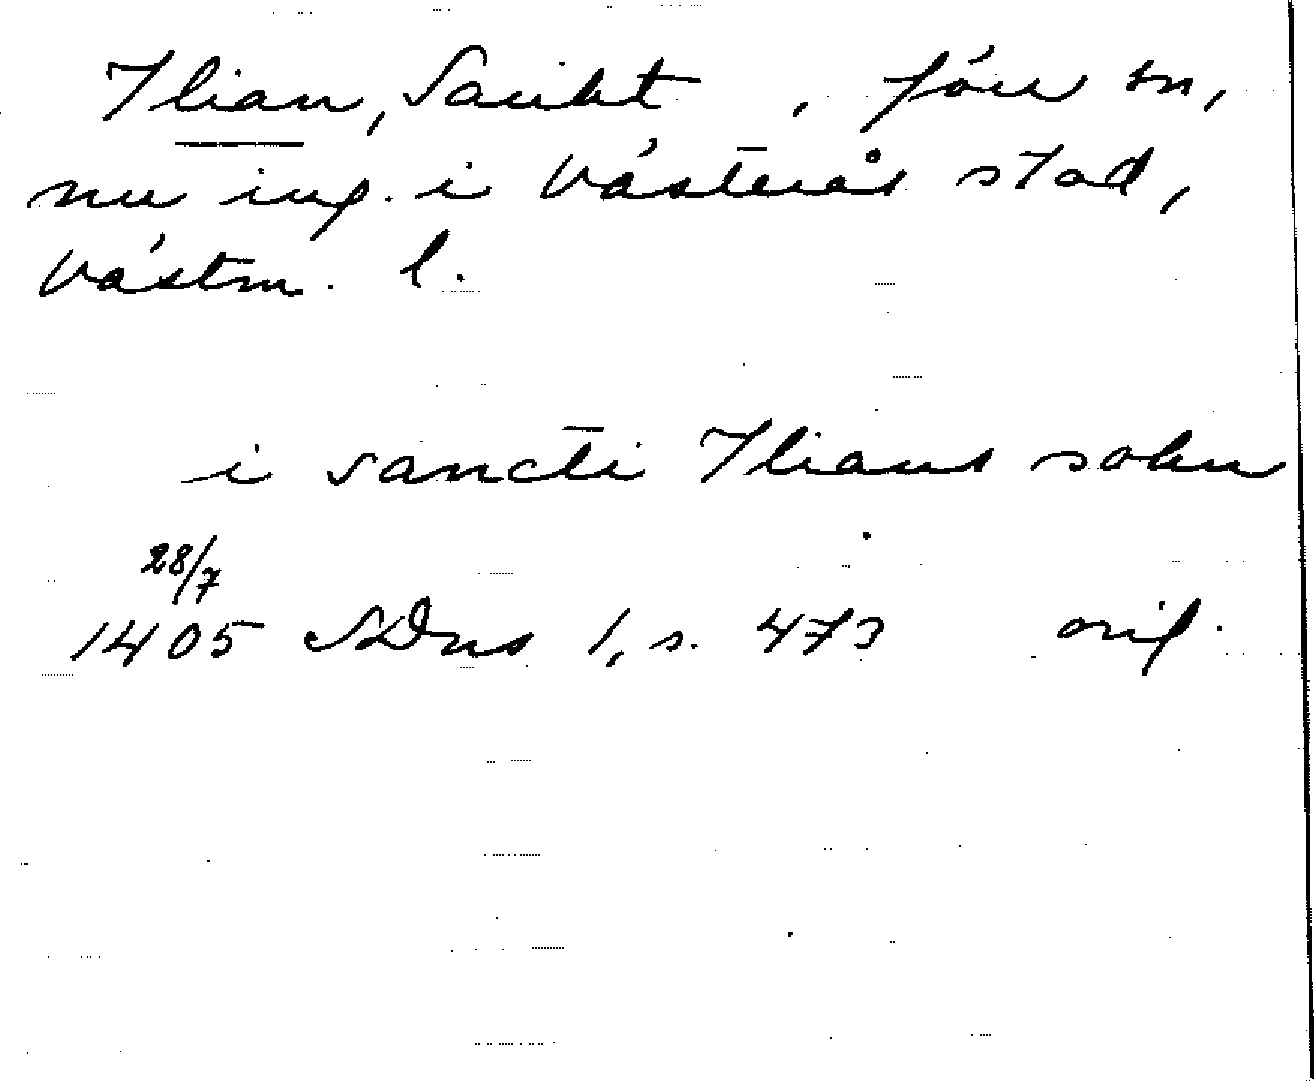 Ilian, Sankt , förr sn,
nu ing. i Västerås stad,
Västm. l.
i sancti Ilians sokn
28/7
1405 SDns 1, s. 473 orig.